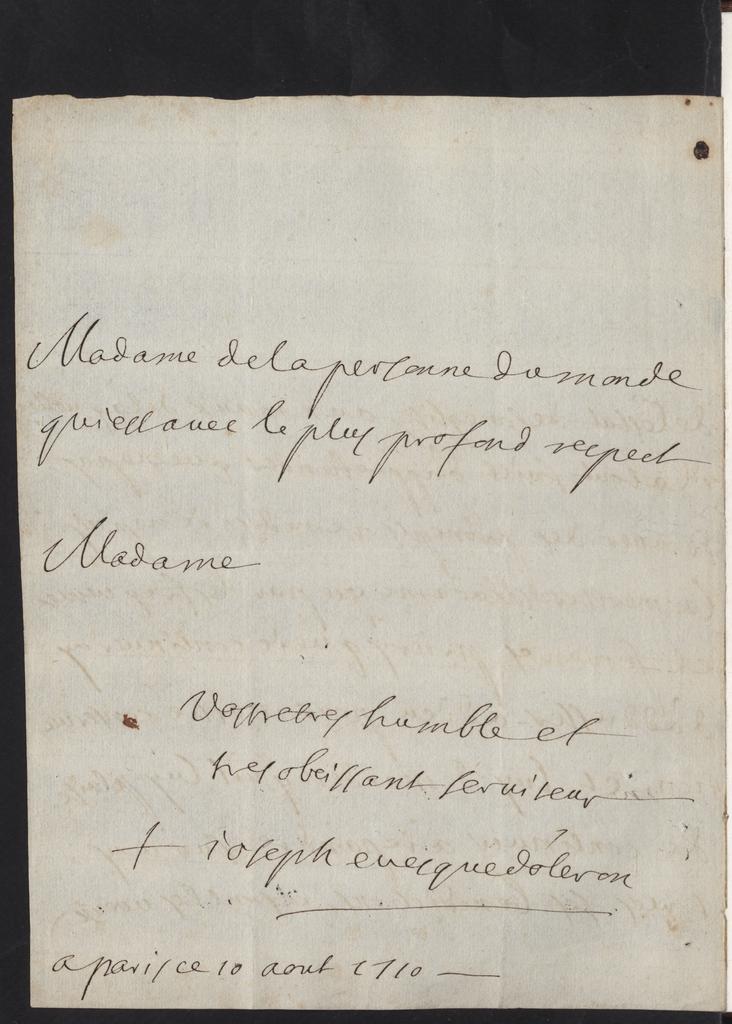 Madame de la personne du monde
qui est avec le plus profond respect
Madame
Vostre tres humble et
tres obeissant serviteur
+ ioseph evesque d'oleron
a paris ce 10 aout 1710